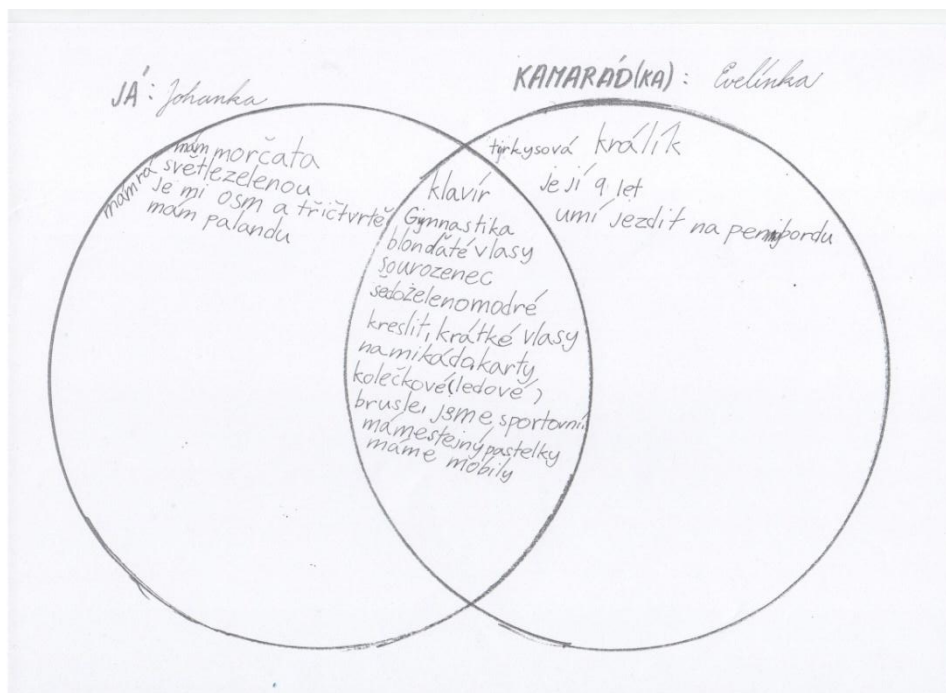 JÁ: Johanka
KAMARÁD(KA): Evelínka
mám morčata
mám rá světlezelenou
Je mi osm a třičtvrtě
mám palandu
klavír
Gymnastika
blonďaté vlasy
Sourozenec
šedozelenomodré
kreslit, krátké vlasy
na mikádo, karty
kolečkové (ledové)
brusle, jsme sportovní
máme stejný pastelky
máme mobily
tyrkysová králík
je jí 9 let
umí jezdit na pennybordu